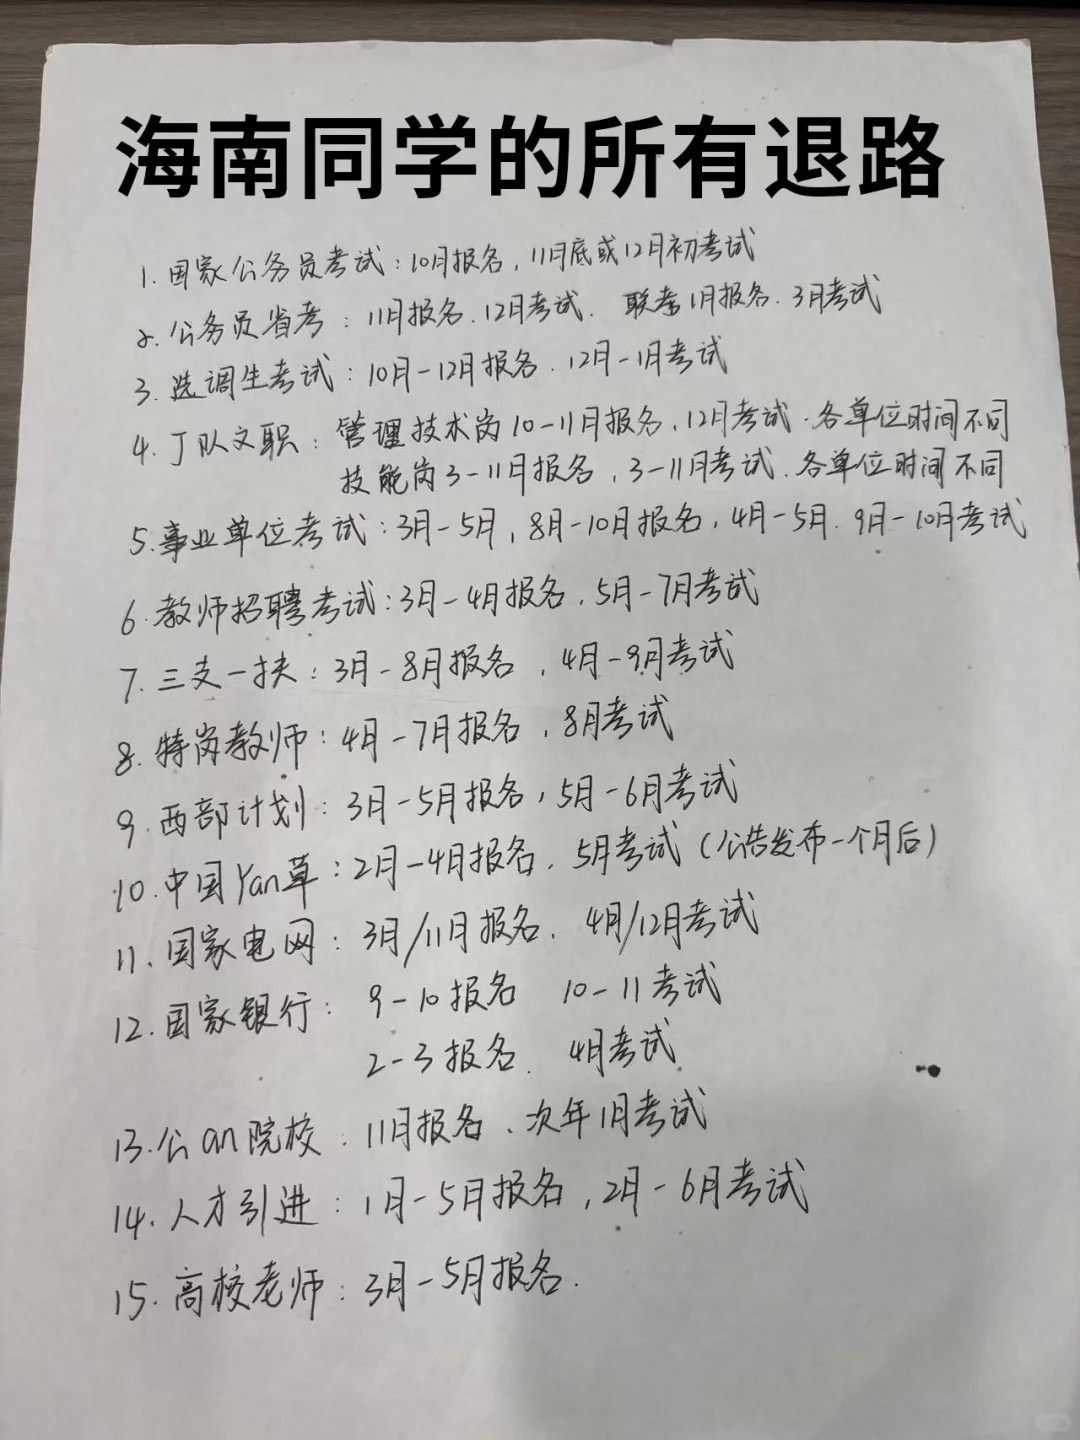 海南同学的所有退路
1. 国家公务员考试：10月报名，11月底或12月初考试
2. 公务员省考：11月报名．12月考试． 联考1月报名．3月考试
3. 选调生考试：10月-12月报名．12月-1月考试
4. J队文职：管理技术岗10-11月报名，12月考试．各单位时间不同
技能岗3-11月报名，3-11月考试．各单位时间不同
5. 事业单位考试：3月-5月，8月-10月报名，4月-5月．9月-10月考试
6. 教师招聘考试：3月-4月报名，5月-7月考试
7. 三支一扶：3月-8月报名，4月-9月考试
8. 特岗教师：4月-7月报名，8月考试
9. 西部计划：3月-5月报名，5月-6月考试
10. 中国Yan草：2月-4月报名．5月考试（公告发布一个月后）
11. 国家电网：3月/11月报名． 4月/12月考试
12. 国家银行： 9-10报名 10-11考试
2-3报名． 4月考试
13. 公an院校：11月报名、次年1月考试
14. 人才引进：1月-5月报名，2月-6月考试
15. 高校老师：3月-5月报名．